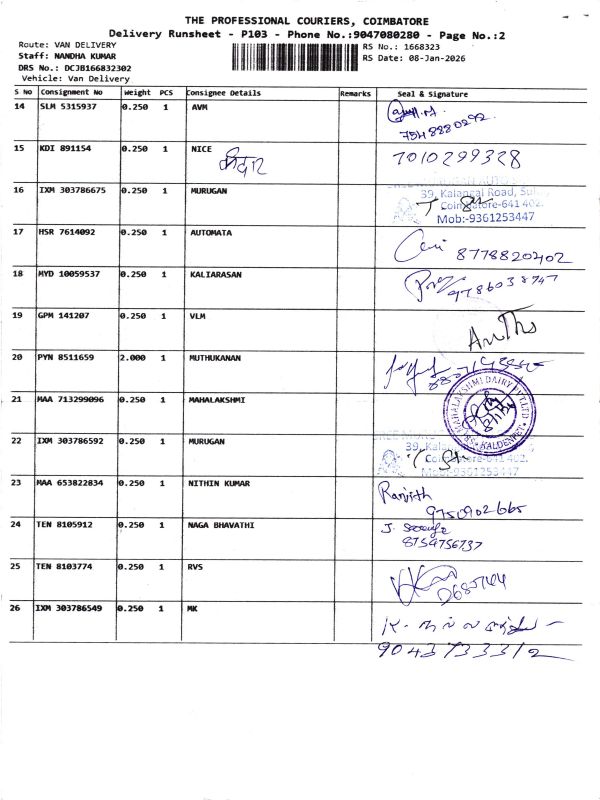 THE PROFESSIONAL COURIERS, COIMBATORE
Delivery Runsheet - P103 - Phone No.:9047080280 - Page No.:2
Route: VAN DELIVERY
RS No.: 1668323
Staff: NANDHA KUMAR
RS Date: 08-Jan-2026
DRS No.: DCJB166832302
Vehicle: Van Delivery
S NO Consignment No Weight PCS Consignee Details Remarks Seal & Signature
14 SLM 5315937 0.250 1 AVM
7548880292
15 KDI 891154 0.250 1 NICE
7010299328
16 IXM 303786675 0.250 1 MURUGAN
39, Kalangal Road, Sulur
Coimbatore-641 402.
Mob:-9361253447
17 HSR 7614092 0.250 1 AUTOMATA
8778820402
18 MYD 10059537 0.250 1 KALIARASAN
9786038747
19 GPM 141207 0.250 1 VLM
20 PYN 8511659 2.000 1 MUTHUKANAN
21 MAA 713299096 0.250 1 MAHALAKSHMI
MAHALAKSHMI DAIRY
22 IXM 303786592 0.250 1 MURUGAN
Coimbatore-641 402.
Mob:-9361253447
23 MAA 653822834 0.250 1 NITHIN KUMAR
Ranjith
9750902665
24 TEN 8105912 0.250 1 NAGA BHAVATHI
8754756737
25 TEN 8103774 0.250 1 RVS
26 IXM 303786549 0.250 1 MK
9043733312